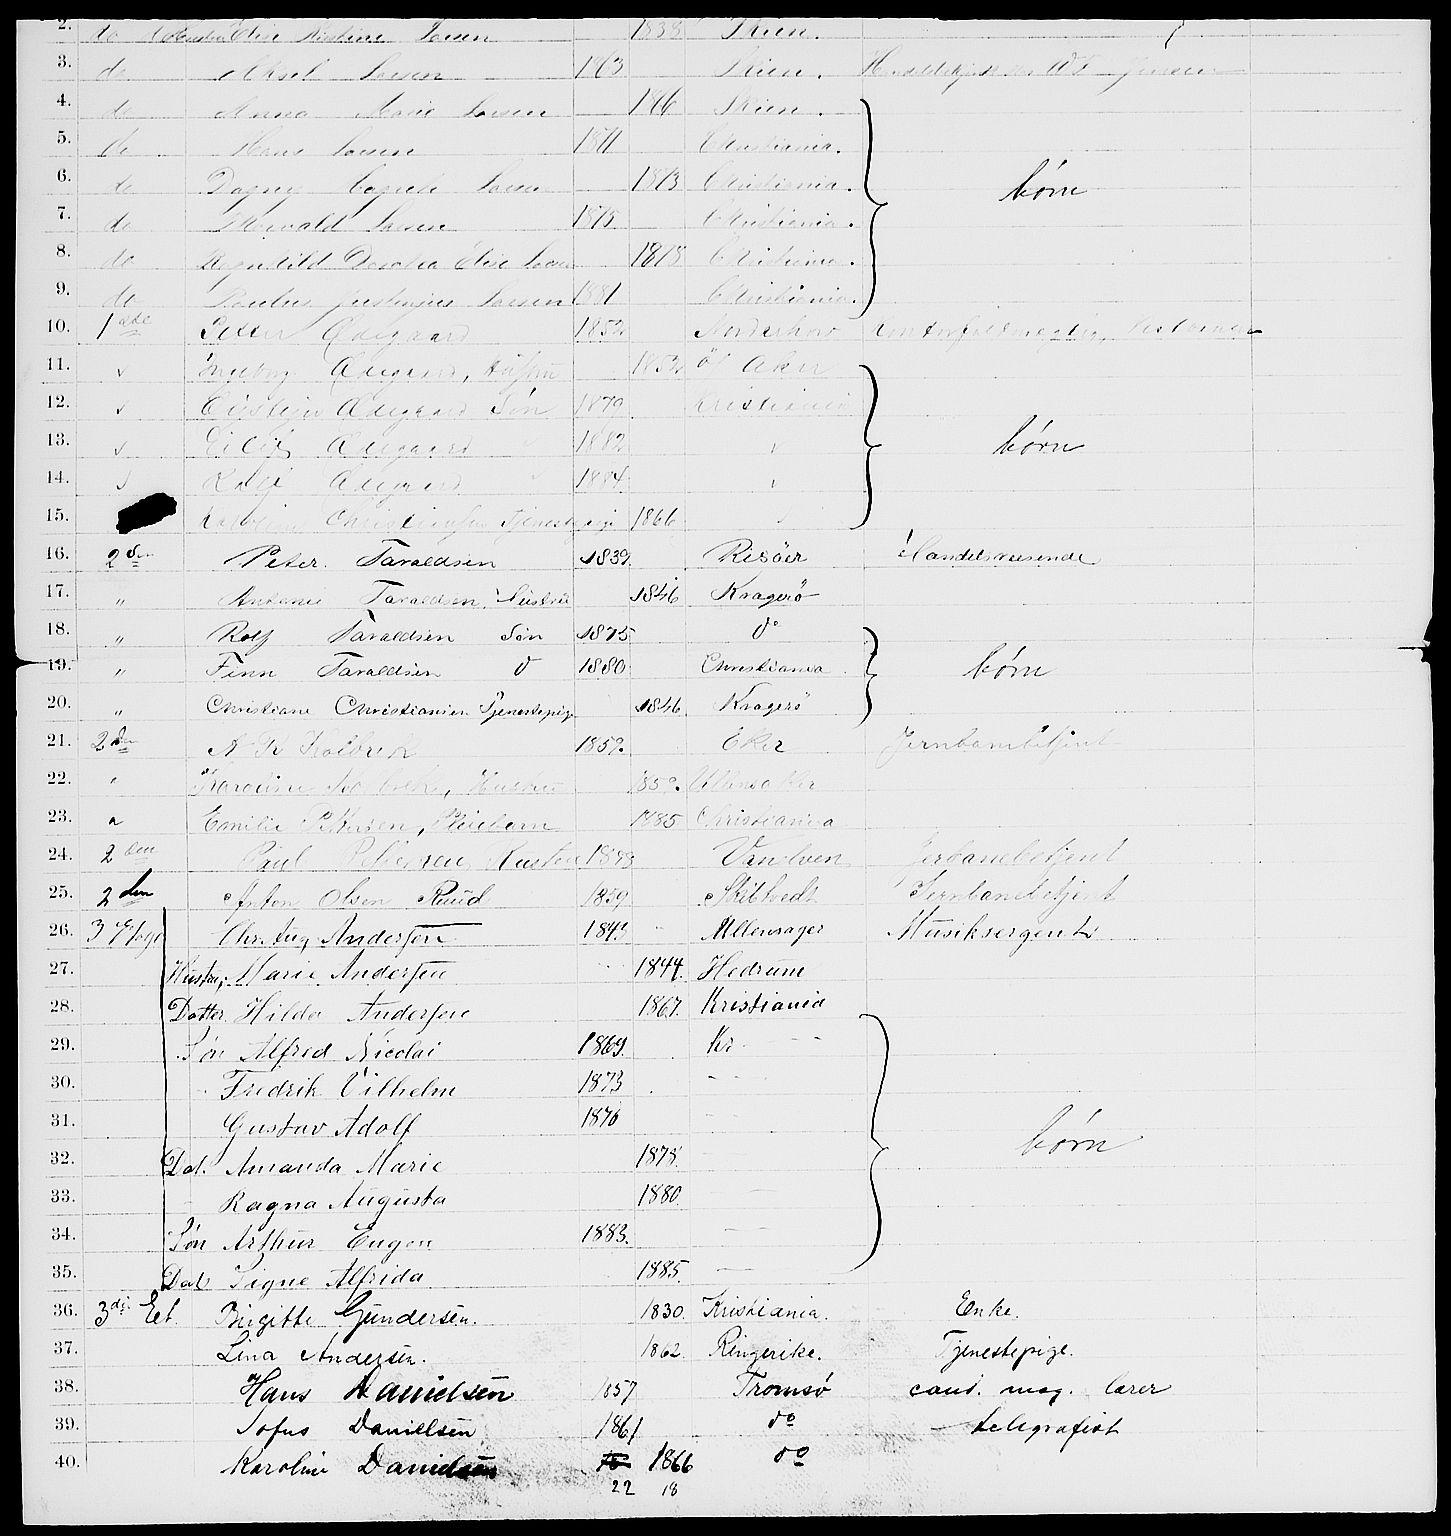 2. do Elise Kirstine Larsen 1838 Skien.
3. do Aksel Larsen 1863 Skien.
4. do Anna Marie Larsen 186 Skien.
5. do Hans Larsen 1871 Christiania.
6. do Dagny Larsen 1873 Christiania. børn
7. do Larsen 1875 Christiania.
8. do Ragnhild Dorothea Elise 1878 Christiania.
9. do Larsen 1881 Christiania.
10. 1ste Petter Ødegaard 1852 Norderhov
11. Ingeborg Ødegaard, Hustru 1852 Aker
12. Ødegaard Søn 1879 Kristiania
13. Eilif Ødegaard 1882 børn
14. Rolf Ødegaard 1884
15. Tjenestepige 1866
16. 2den Peter Taraldsen 1839. Risöer Handelsreisende
17. " Antonie Taraldsen, Hustru 1846 Kragerö
18. " Rolf Taraldsen Søn 1875 do
19. " Finn Taraldsen d 1880 Christiania børn
20. " Christiane Christiansen Tjenestepige 1846 Kragerö
21. 2den 1859. Eker Jernbanebetjent
22. " Karoline Hustru 1859. Ullensaker
23. " Emilie Pettersen, Pleiebarn 1885 Christiania
24. 2den Paul Pettersen 1843 Jerbanebetjent
25. 2den Anton Olsen Ruud 1859 Jernbanebetjent
26. 3 Etage Chr. Aug. Andersen 1843 Ullensager Musiksergent
27. Hustru, Marie Andersen 1844. Hedrum
28. Datter Hilda Andersen 1867. Kristiania
29. Søn Alfred Nicolai 1869. Kr - -
30. - Fredrik Vilhelm 1873 - -
31. Gustav Adolf 1876 - - børn
32. Dat. Amanda Marie 1878. - -
33. - Ragna Augusta 1880. - -
34. Søn Arthur Eugen 1883. - -
35. Dat. Signe Alfrida 1885. -
36. 3die Et. Birgitte Gundersen. 1830. Kristiania. Enke.
37. Lina Andersen. 1862. Ringerike. Tjenestepige.
38. Hans Danielsen 1857 Tromsö cand. mag. lærer
39. Sofus Danielsen 1861 do telegrafist
40. Karoline Danielsen 1866 do
22 18